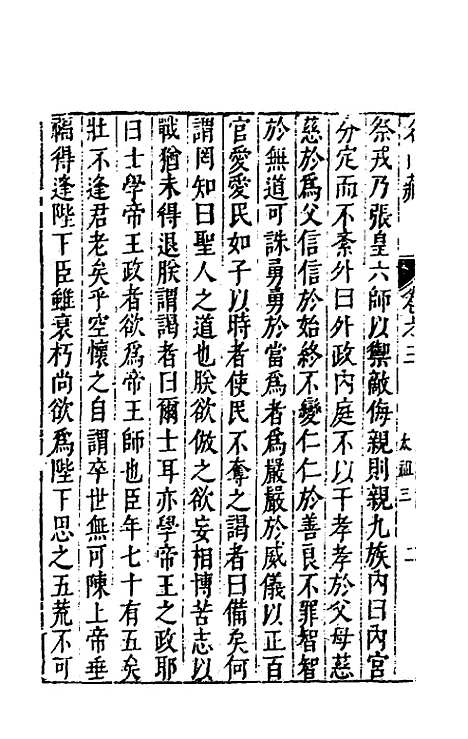 名山藏 卷之三 太祖三 二
祭戎乃張皇六師以禦敵侮親則親九族內曰內宮
分定而不紊外曰外政內庭不以干孝孝於父母慈
慈於爲父信信於始終不變仁仁於善良不罪智智
於無道可誅勇勇於當爲者爲嚴嚴於威儀以正百
官愛愛民如子以時者使民不奪之謁者曰備矣何
謂罔知曰聖人之道也朕欲倣之欲妄相博苦志以
戰猶未得退朕謂謁者曰爾士耳亦學帝王之政耶
曰士學帝王政者欲爲帝王師也臣年七十有五矣
壯不逢君老矣乎空懷之自謂卒世無可陳上帝垂
福得逢陛下臣雖衰朽尚欲爲陛下思之五荒不可